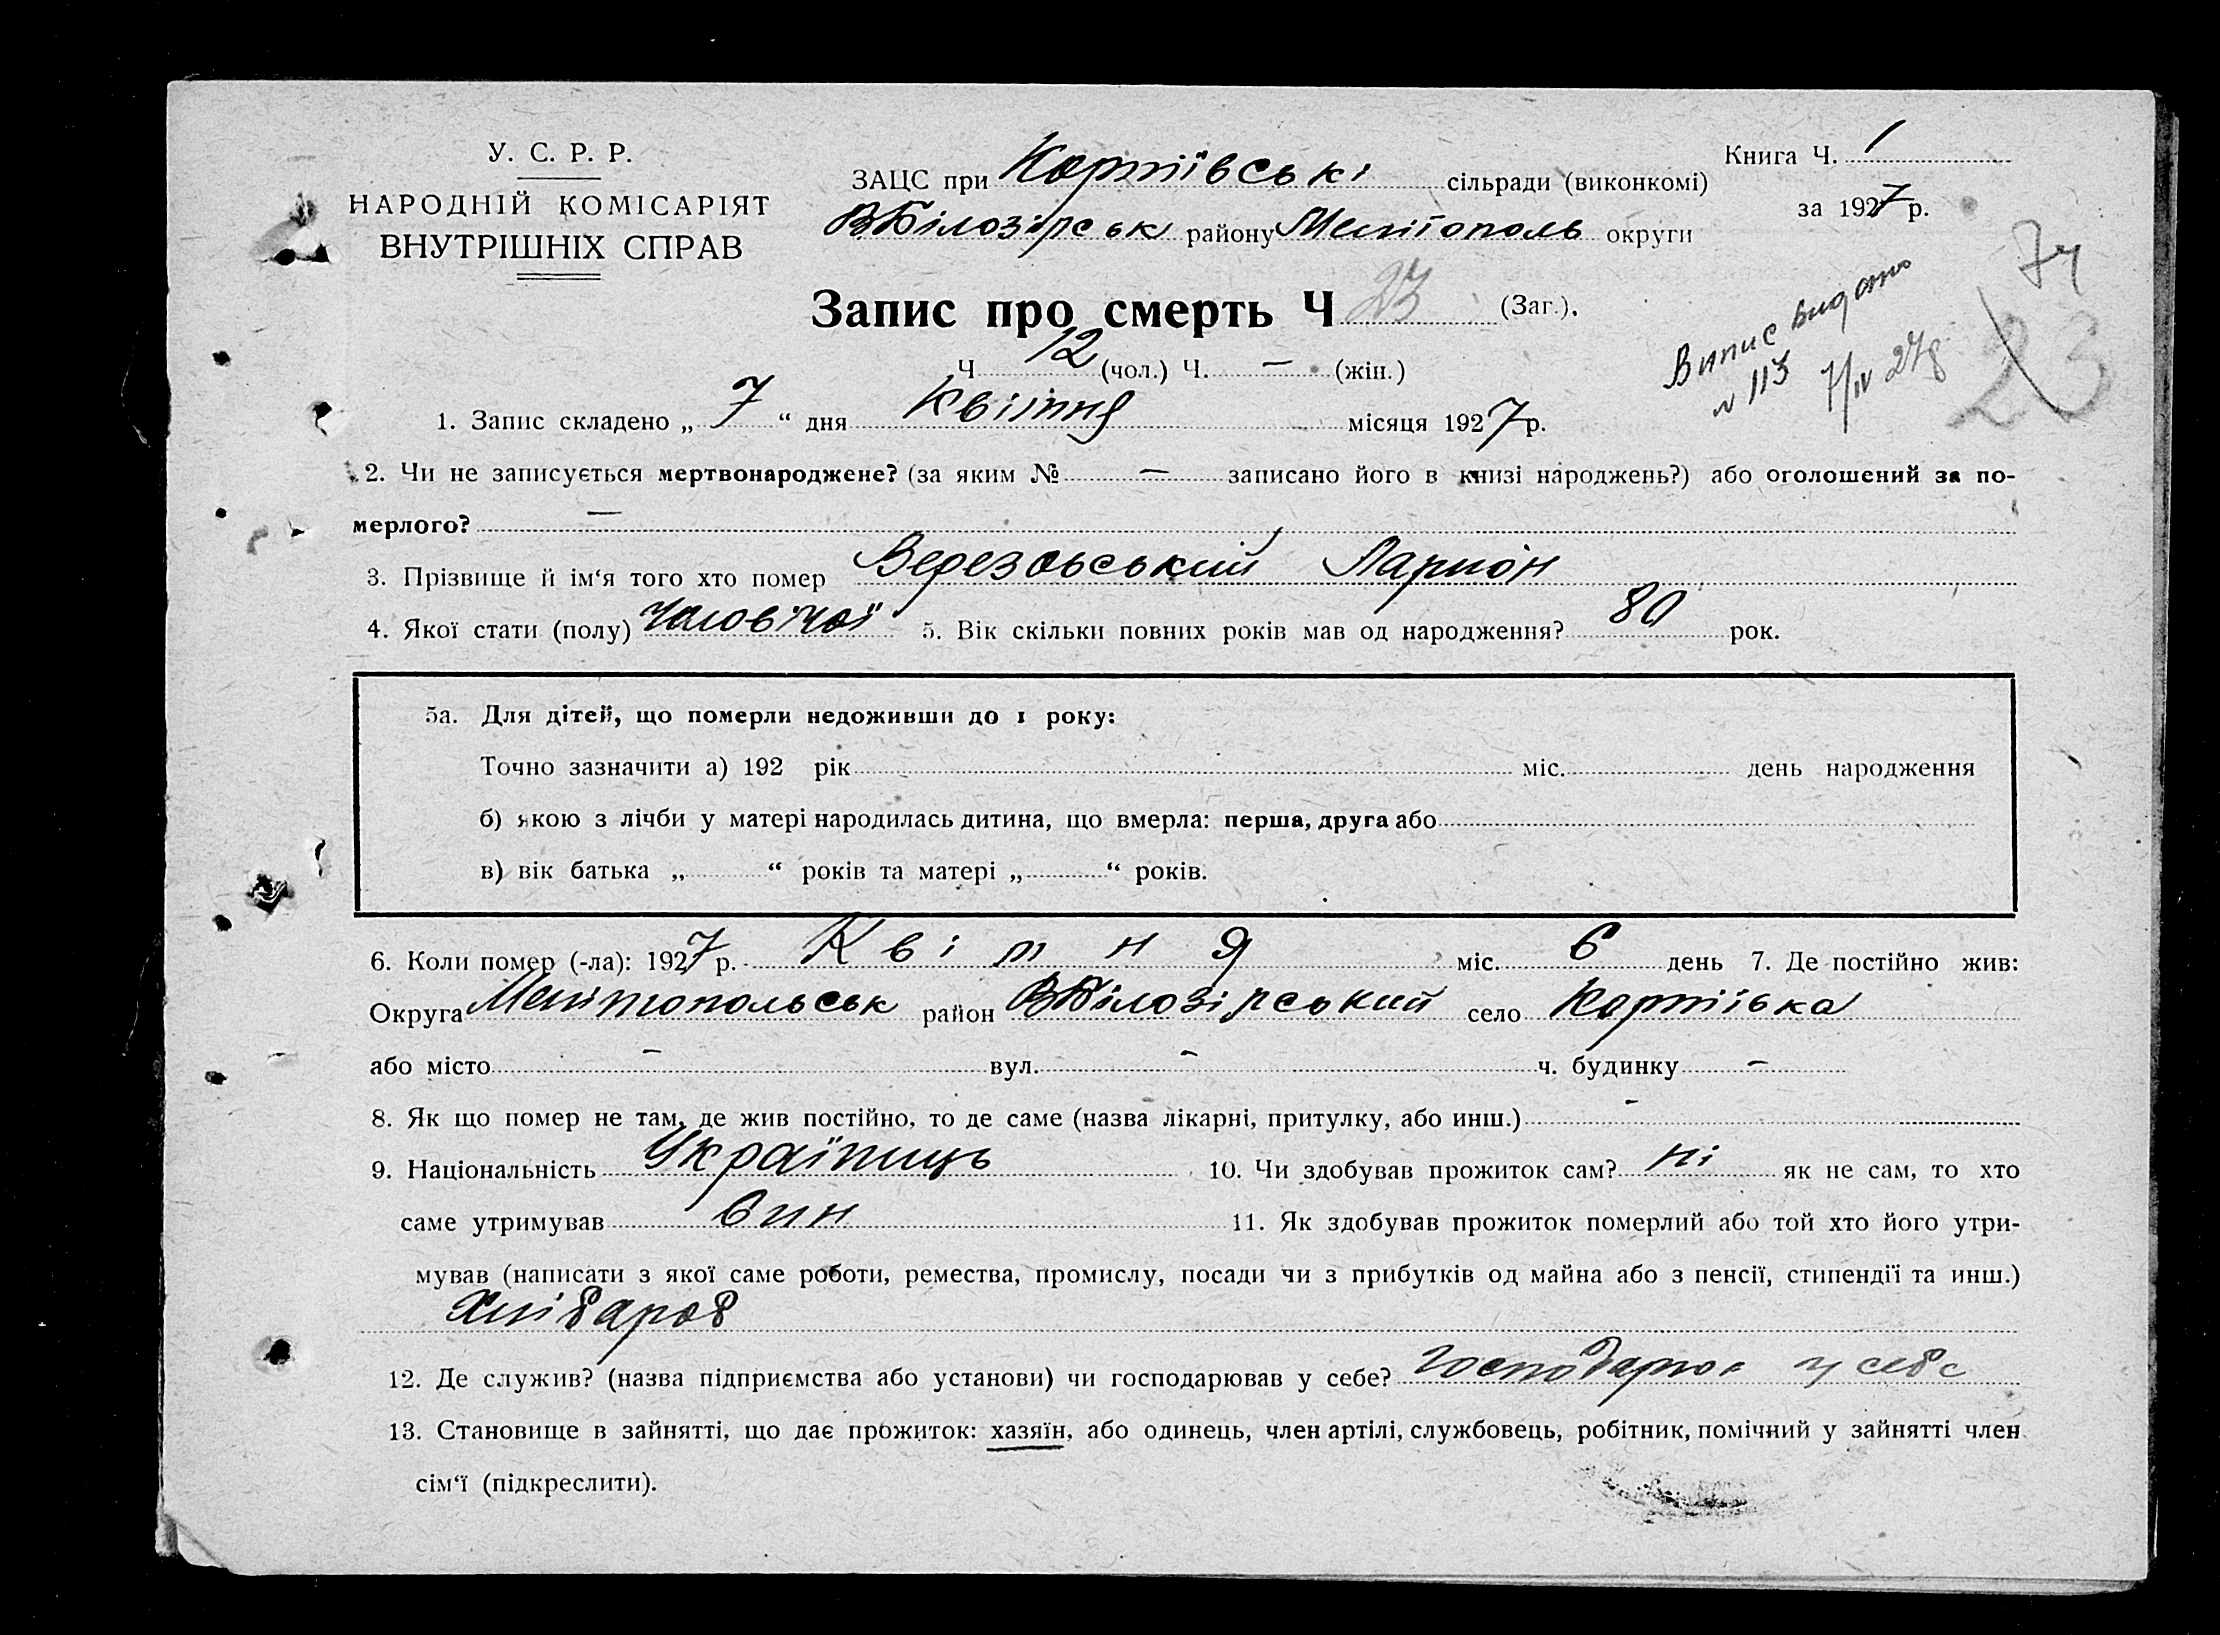 У. С. Р. Р.
НАРОДНІЙ КОМІСАРІЯТ
ВНУТРІШНІХ СПРАВ
ЗАЦС при Картіївські сільради (виконкомі)
ВБілозірськ району Мелітополь округи
Книга Ч. 1
за 1927 р.
74
23
Випис видано
№ 113 7/IV 27р
Запис про смерть Ч 23 (Заг.).
Ч 12 (чол.) Ч. — (жін.)
1. Запис складено „ 7 “ дня Квітня місяця 1927 р.
2. Чи не записується мертвонароджене? (за яким № — записано його в книзі народжень?) або оголошений за по-
мерлого? —
3. Прізвище й ім‘я того хто помер Ларион
4. Якої стати (полу) Чоловічої 5. Вік скільки повних років мав од народження? 80 рок.
5а. Для дітей, що померли недоживши до 1 року:
Точно зазначити а) 192 рік міс. день народження
б) якою з лічби у матері народилась дитина, що вмерла: перша, друга або
в) вік батька „ “ років та матері „ “ років.
6. Коли помер (-ла): 1927 р. Квітня міс. 6 день 7. Де постійно жив:
Округа Мелітопольськ район ВБілозірський село Картіївка
або місто — вул. — ч. будинку —
8. Як що помер не там, де жив постійно, то де саме (назва лікарні, притулку, або инш.) -
9. Національність Українець 10. Чи здобував прожиток сам? ні як не сам, то хто
саме утримував син 11. Як здобував прожиток померлий або той хто його утри-
мував (написати з якої саме роботи, ремества, промислу, посади чи з прибутків од майна або з пенсії, стипендії та инш.)
Хлібороб
12. Де служив? (назва підприємства або установи) чи господарював у себе? у себе
13. Становище в зайнятті, що дає прожиток: хазяїн, або одинець, член артілі, службовець, робітник, помічний у зайнятті член
сім‘ї (підкреслити).